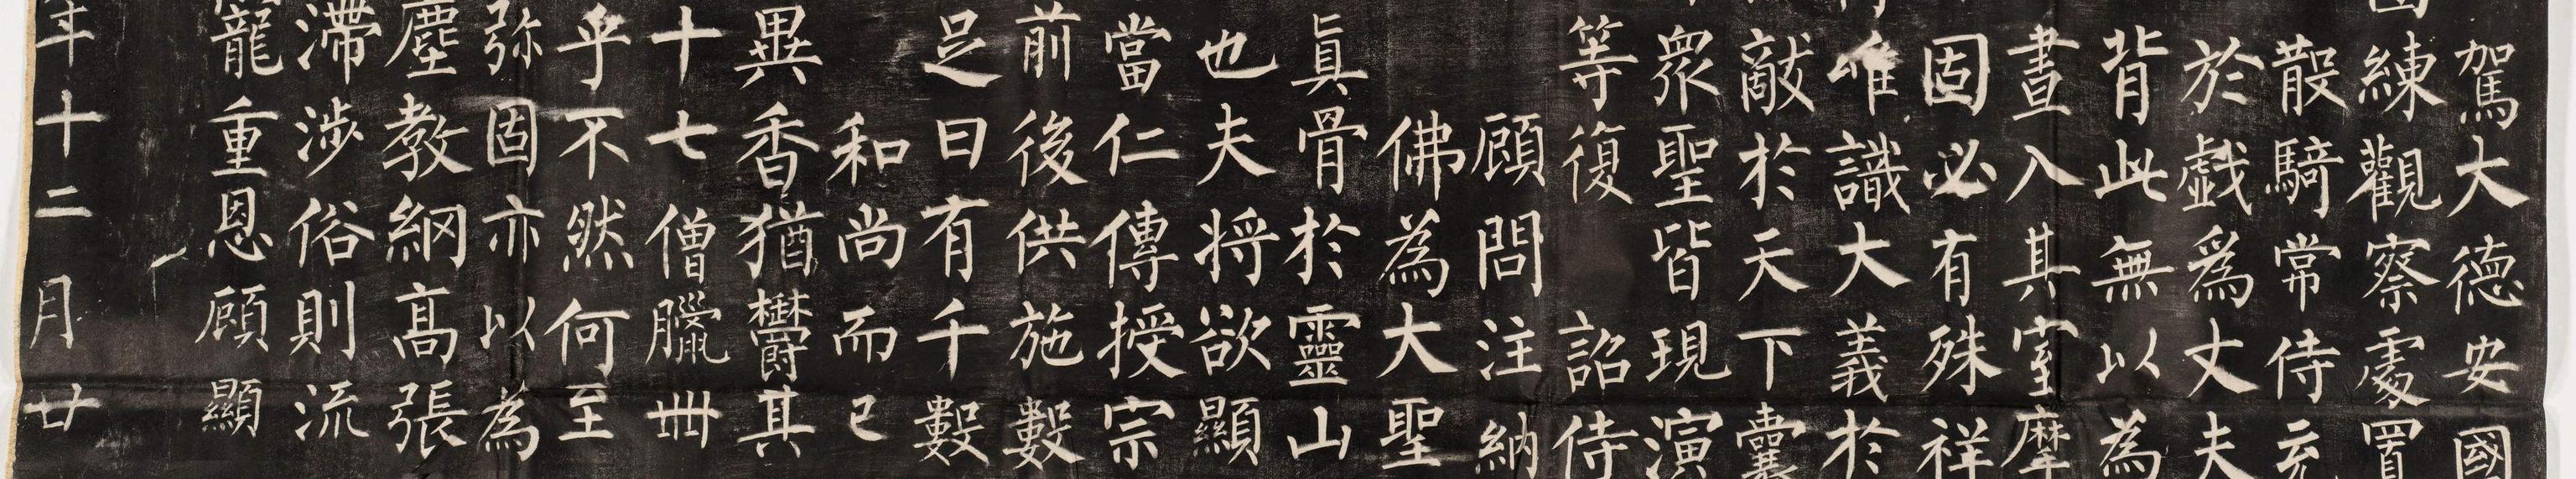 駕大德安國
練觀察處置
散騎常侍充
於戲為丈夫
背此無以為
晝入其室摩
固必有殊祥
唯識大義於
敵於天下囊
眾聖皆現演
等復 詔侍
顧問注納
佛為大聖
真骨於靈山
也夫將欲顯
當仁傳授宗
前後供施數
足曰有千數
和尚而已
異香猶鬱其
十七僧臘卌
乎不然何至
弥固亦以為
塵教綱高張
滯涉俗則流
寵重恩顧顯
年十二月廿